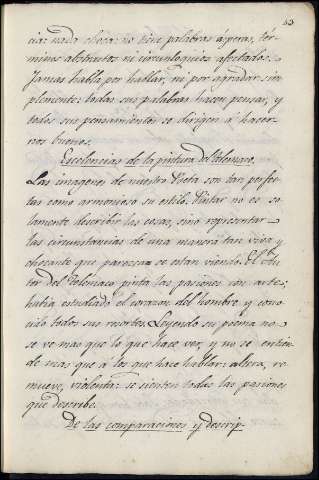 63
cia: nada choca: no tiene palabras asperas, ter-
minos abstrutos ni circunloquios afectados.
Jamas habla por hablar, ni por agradar sim
plemente: todas sus palabras hacen pensar, y
todos sus pensamientos se dirigen á hacer-
nos buenos.
Excelencias de la pintura del Telemaco.
Las imagenes de nuestro Poeta son tan perfec-
tas como armonioso su estilo. Pintar no es so
lamente describir las cosas, sino representar
las circunstancias de una manera tan viva y
chocante que parezcan se estan viendo. El Au-
tor del Telemaco pinta las pasiones con arte:
había estudiado el corazon del hombre y cono-
cido todos sus resortes. Leyendo su poema no
se ve mas que lo que hace ver, y no se entien
de mas que á los que hace hablar: altera, re-
mueve, violenta: se sienten todas las pasiones
que describe.
De las comparaciones y descrip-